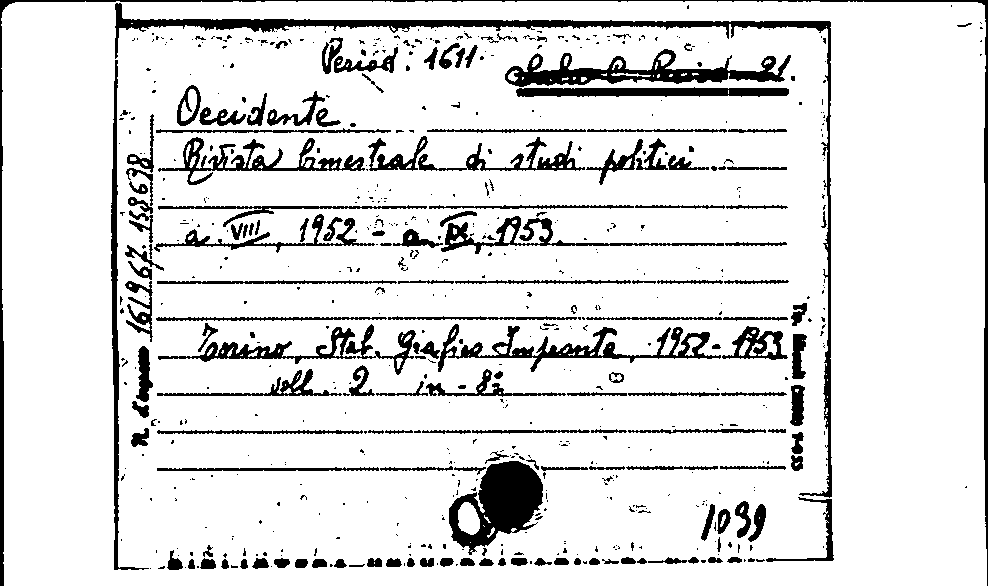 Period. 1611.
Sala C. Period 21.
Occidente.
Rivista bimestrale di studi politici
a. VIII, 1952 - a. IX, 1953.
Torino, Stab. Grafico Impronta, 1952-1953
voll. 2. in-8º
1039
N. d'ingresso 161967 158698
Tip.